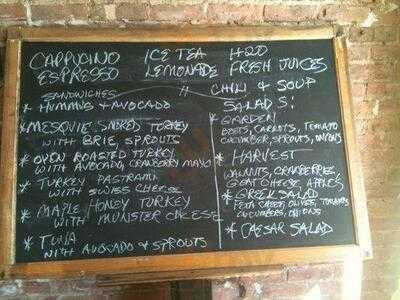 CAPPUCINO ICE TEA H2O
ESPRESSO LEMONADE FRESH JUICES
CHILI & SOUP
SANDWICHES
* HUMMUS & AVOCADO
* MESQUIE SMOKED TURKEY
WITH BRIE, SPROUTS
* OVEN ROASTED TURKEY
WITH AVOCADO, CRANBERRY MAYO
* TURKEY PASTRAMI
WITH SWISS CHEESE
* MAPLE HONEY TURKEY
WITH MUNSTER CHEESE
* TUNA
WITH AVOCADO & SPROUTS
SALADS:
* GARDEN
BEETS, CARROTS, TOMATO
CUCUMBER, SPROUTS, ONIONS
* HARVEST
WALNUTS, CRANBERRIES
GOAT CHEESE, APPLES
* GREEK SALAD
FETA CHEESE, OLIVES, TOMATOES
CUCUMBERS, ONIONS
* CAESAR SALAD